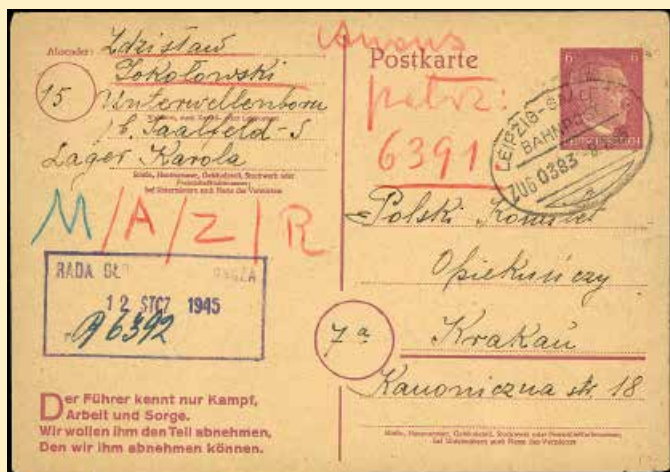 Absender: Zdzisław
Sokołowski
15 Unterwellenborn
/b. Saalfeld-S
Lager Karola
Straße, Hausnummer, Gebäudeteil, Stockwerk oder
Postschließfachnummer;
bei Untermietern auch Name des Vermieters
M/A/Z/R
RADA GŁ
12 STCZ 1945
A 6392
Der Führer kennt nur Kampf,
Arbeit und Sorge.
Wir wollen ihm den Teil abnehmen,
Den wir ihm abnehmen können.
Postkarte
6391
6 6
LEIPZIG-
BAHNPOST
ZUG 0383
Polski Komitet
Opiekuńczy
7a
Krakau
Kanoniczna str. 18
Straße, Hausnummer, Gebäudeteil, Stockwerk oder Postschließfachnummer;
bei Untermietern auch Name des Vermieters